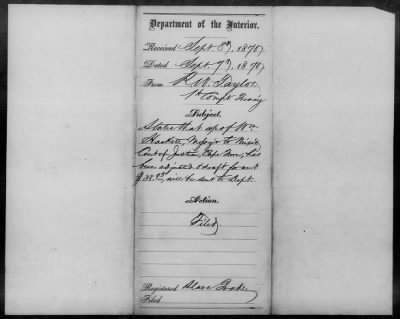 Department of the Interior.
Received Sept. 8th, 1870.
Dated Sept. 7th, 1870.
From R. W. Taylor
1st Compt. Treasy
Subject.
States that a/c of Wm.
Hackett, Messgr to Mixed
Court of Justice, Cape Town, has
been adjusted & draft for amt
will be sent to Dept.
Action.
Filed.
Registered Slave Trade
Filed